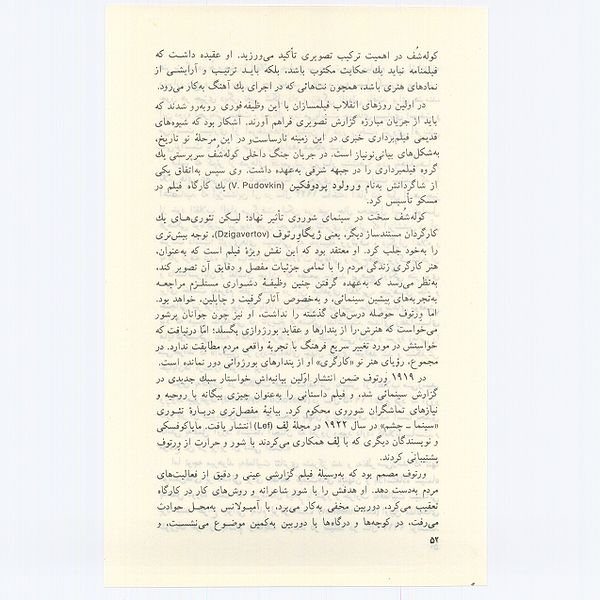 کوله‌شُف در اهمیت ترکیب تصویری تأکید می‌ورزید. او عقیده داشت که
فیلمنامه نباید یك حکایت مکتوب باشد، بلکه بایـد ترتیـب و آرایشی از
نمادهای هنری باشد، همچون نت‌هائی که در اجرای یك آهنگ به‌کار می‌رود.
در اولین روزهای انقلاب فیلمسازان با این وظیفه‌فوری روبه‌رو شدند که
باید از جریان مبارزه گزارش تصویری فراهم آورند. آشکار بود که شیوه‌های
قدیمی فیلمبرداری خبری در این زمینه نارساست، در این مرحلهٔ نو تاریخ،
به‌شکل‌های بیانی‌نونیاز است. در جریان جنگ داخلی کوله‌شف سرپرستی یك
گروه فیلمبرداری را در جبههٔ شرقی به‌عهده داشت. وی سپس به‌اتفاق یکی
از شاگردانش به‌نام ورولود پودوفکین (V. Pudovkin) یك کارگاه فیلم در
مسکو تأسیس کرد.
کوله‌شف سخت در سینمای شوروی تأثیر نهاد؛ لیـکن تئوری‌هـای یك
کارگردان مستندساز دیگر، یعنی ژیگاورتوف (Dzigavertov)، توجه بیش‌تری
را به‌خود جلب کرد. او معتقد بود که این نقش ویژهٔ فیلم است که به‌عنوان،
هنر کارگری زندگی مردم را با تمامی جزئیات مفصل و دقایق آن تصویر کند،
به‌نظر می‌رسد که به‌عهده گرفتن چنین وظیفـهٔ دشـواری مستلـزم مراجعـه
به‌تجربه‌های پیشین سینمائی، و به‌خصوص آثار گرفیت و چاپلین، خواهد بود.
اما وِرتوف حوصله درس‌های گذشته را نداشت. او نیز چون جوانان پرشور
می‌خواست که هنرش را از پندارها و عقاید بورژوازی بگسلد؛ امّا درنیافت که
خواستش در مورد تغییر سریع فرهنگ با تجربهٔ واقعی مردم مطابقت ندارد. در
مجموع، رؤیای هنر نو «کارگری» او از پندارهای بورژوائی دور نمانده است.
در ۱۹۱۹ وِرتوف ضمن انتشار اوّلین بیانیه‌اش خواستار سبك جدیدی در
گزارش سینمائی شد، و فیلم داستانی را به‌عنوان چیزی بیگانه با روحیه و
نیازهای تماشگران شوروی محکوم کرد. بیانیهٔ مفصل‌تری دربـارهٔ تئـوری
«سینما ــ چشم» در سال ۱۹۲۲ در مجلهٔ لِف (Lef) انتشار یافت. مایاکوفسکی
و نویسندگان دیگری که با لِف همکاری می‌کردند با شور و حرارت از وِرتوف
پشتیبانی کردند.
ورتوف مصمم بود که به‌وسیلهٔ فیلم گزارشی عینی و دقیق از فعالیت‌های
مردم به‌دست دهد. او هدفش را با شور شاعرانه و روش‌های کار در کارگاه
تعقیب می‌کرد، دوربین مخفی به‌کار می‌برد، با آمبـولانس به‌محـل حوادث
می‌رفت، در کوچه‌ها و درگاه‌ها با دوربین به‌کمین موضـوع می‌نشسـت، و
۵۲